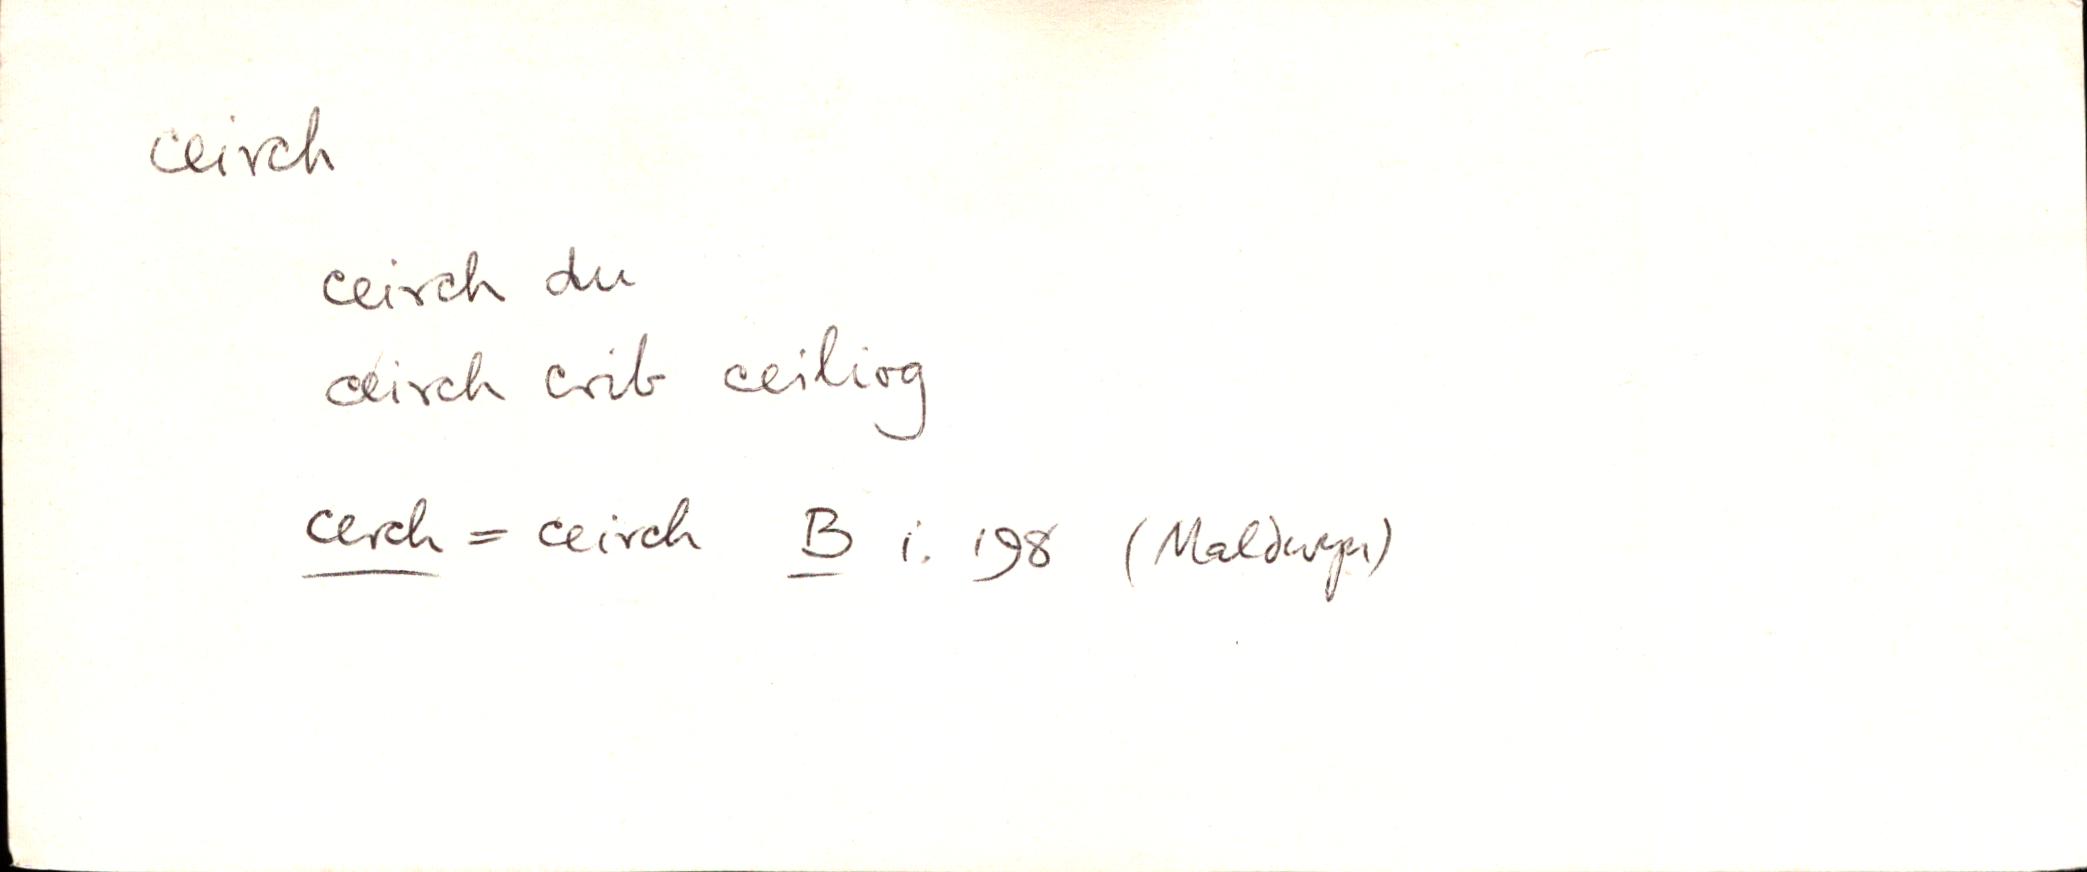 ceirch
ceirch du
ceirch crib ceiliog
cerch = ceirch B i. 198 (Maldwyn)